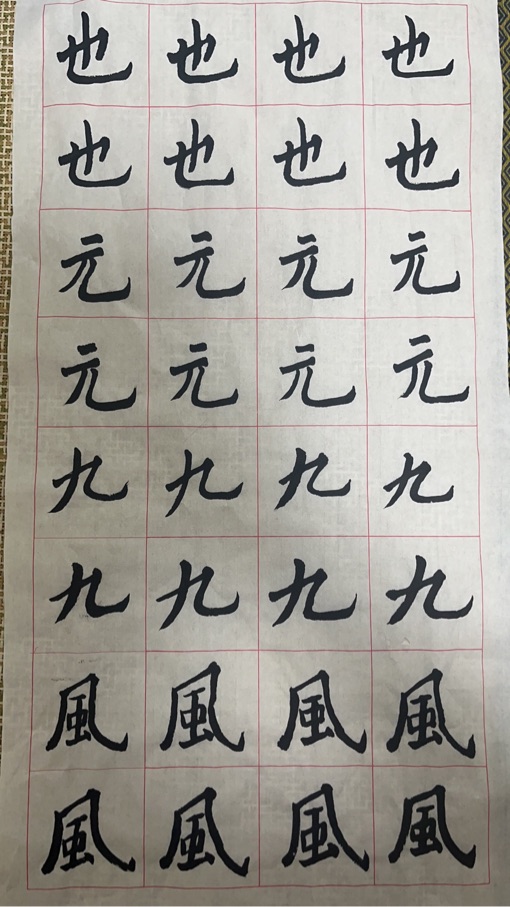 也也也也
也也也也
元元元元
元元元元
九九九九
九九九九
風風風風
風風風風